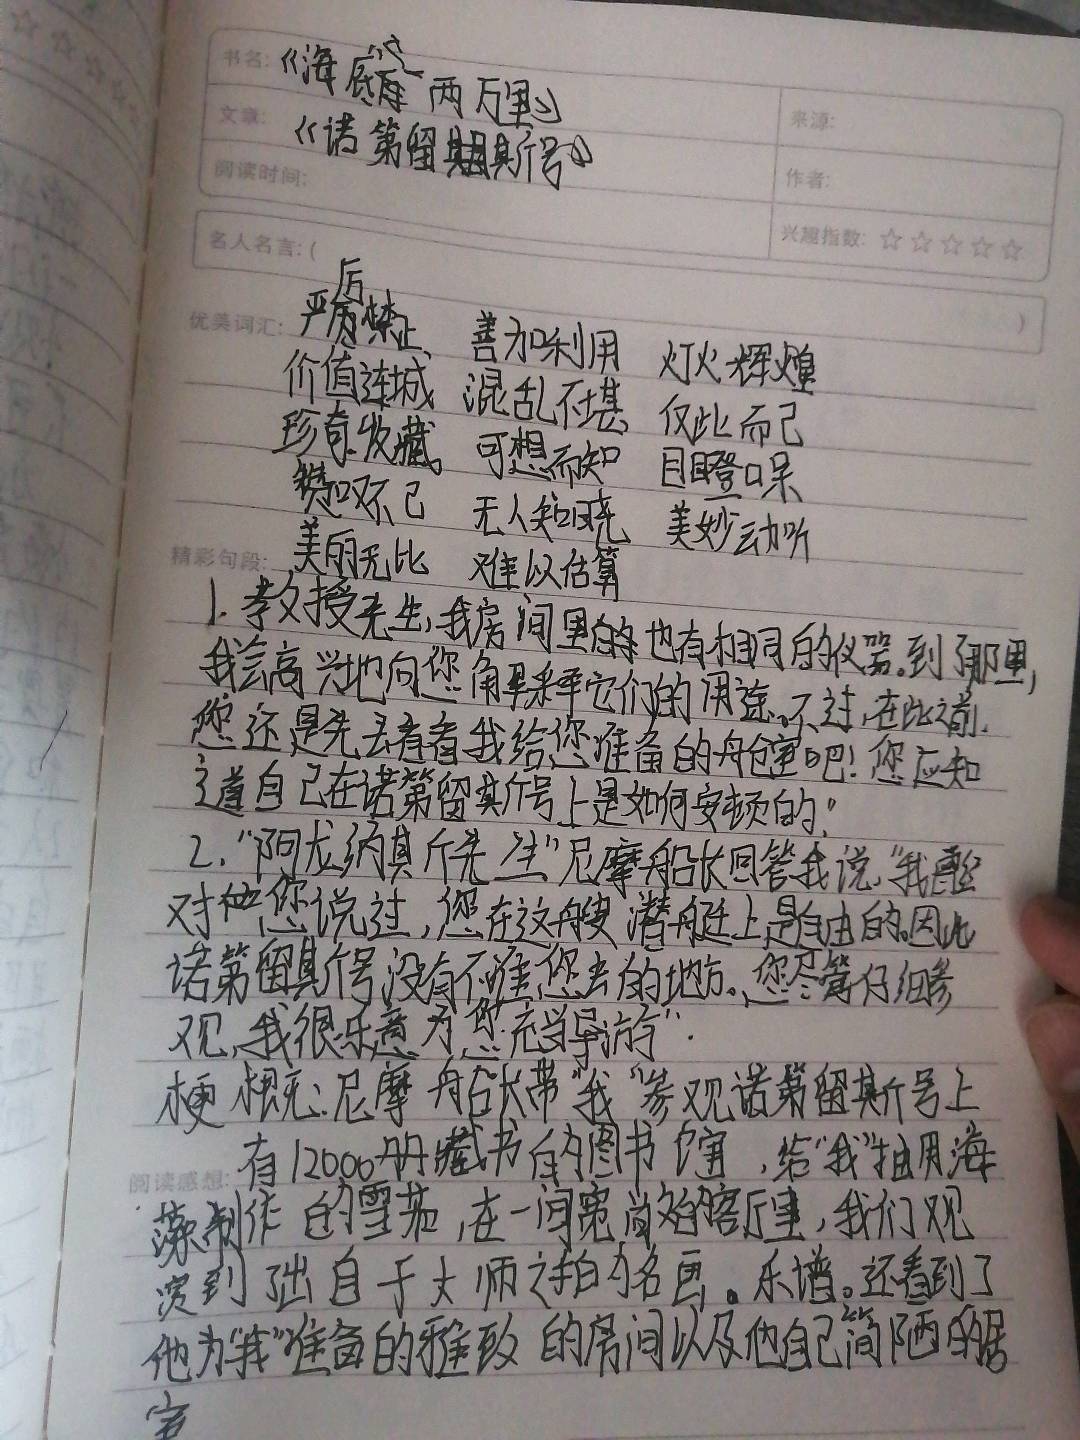 书名: 《海底两万里》
来源:
文章: 《诺第留斯号》
阅读时间:
作者:
兴趣指数: ☆☆☆☆☆
名人名言: ( )
厉
优美词汇: 严厉禁止、 善加利用 灯火辉煌
价值连城 混乱不堪、 仅此而已
珍奇收藏 可想而知 目瞪口呆
赞叹不已 无人知晓 美妙动听
精彩句段: 美丽无比 难以估算
1. 教授先生,我房间里的也有相同的仪器。到了那里,
我会高兴地向您解释它们的用途。不过,在此之前,
您还是先去看看我给您准备的舱室吧!您应知
道自己在诺第留斯号上是如何安顿的!
2. "阿龙纳斯先生"尼摩船长回答我说,"我
对您说过,您在这艘潜艇上是自由的。因此
诺第留斯号没有不准您去的地方。您尽管仔细参
观,我很乐意为您充当导游".
梗概: 尼摩船长带"我"参观诺第留斯号上
有12000册藏书的图书室,给"我"抽用海
阅读感想:
藻制作的雪茄,在一间宽尚的客厅里,我们观
赏到了出自于大师之手的名画。乐谱。还看到了
他为"我"准备的雅致的房间以及他自己简陋的居
室